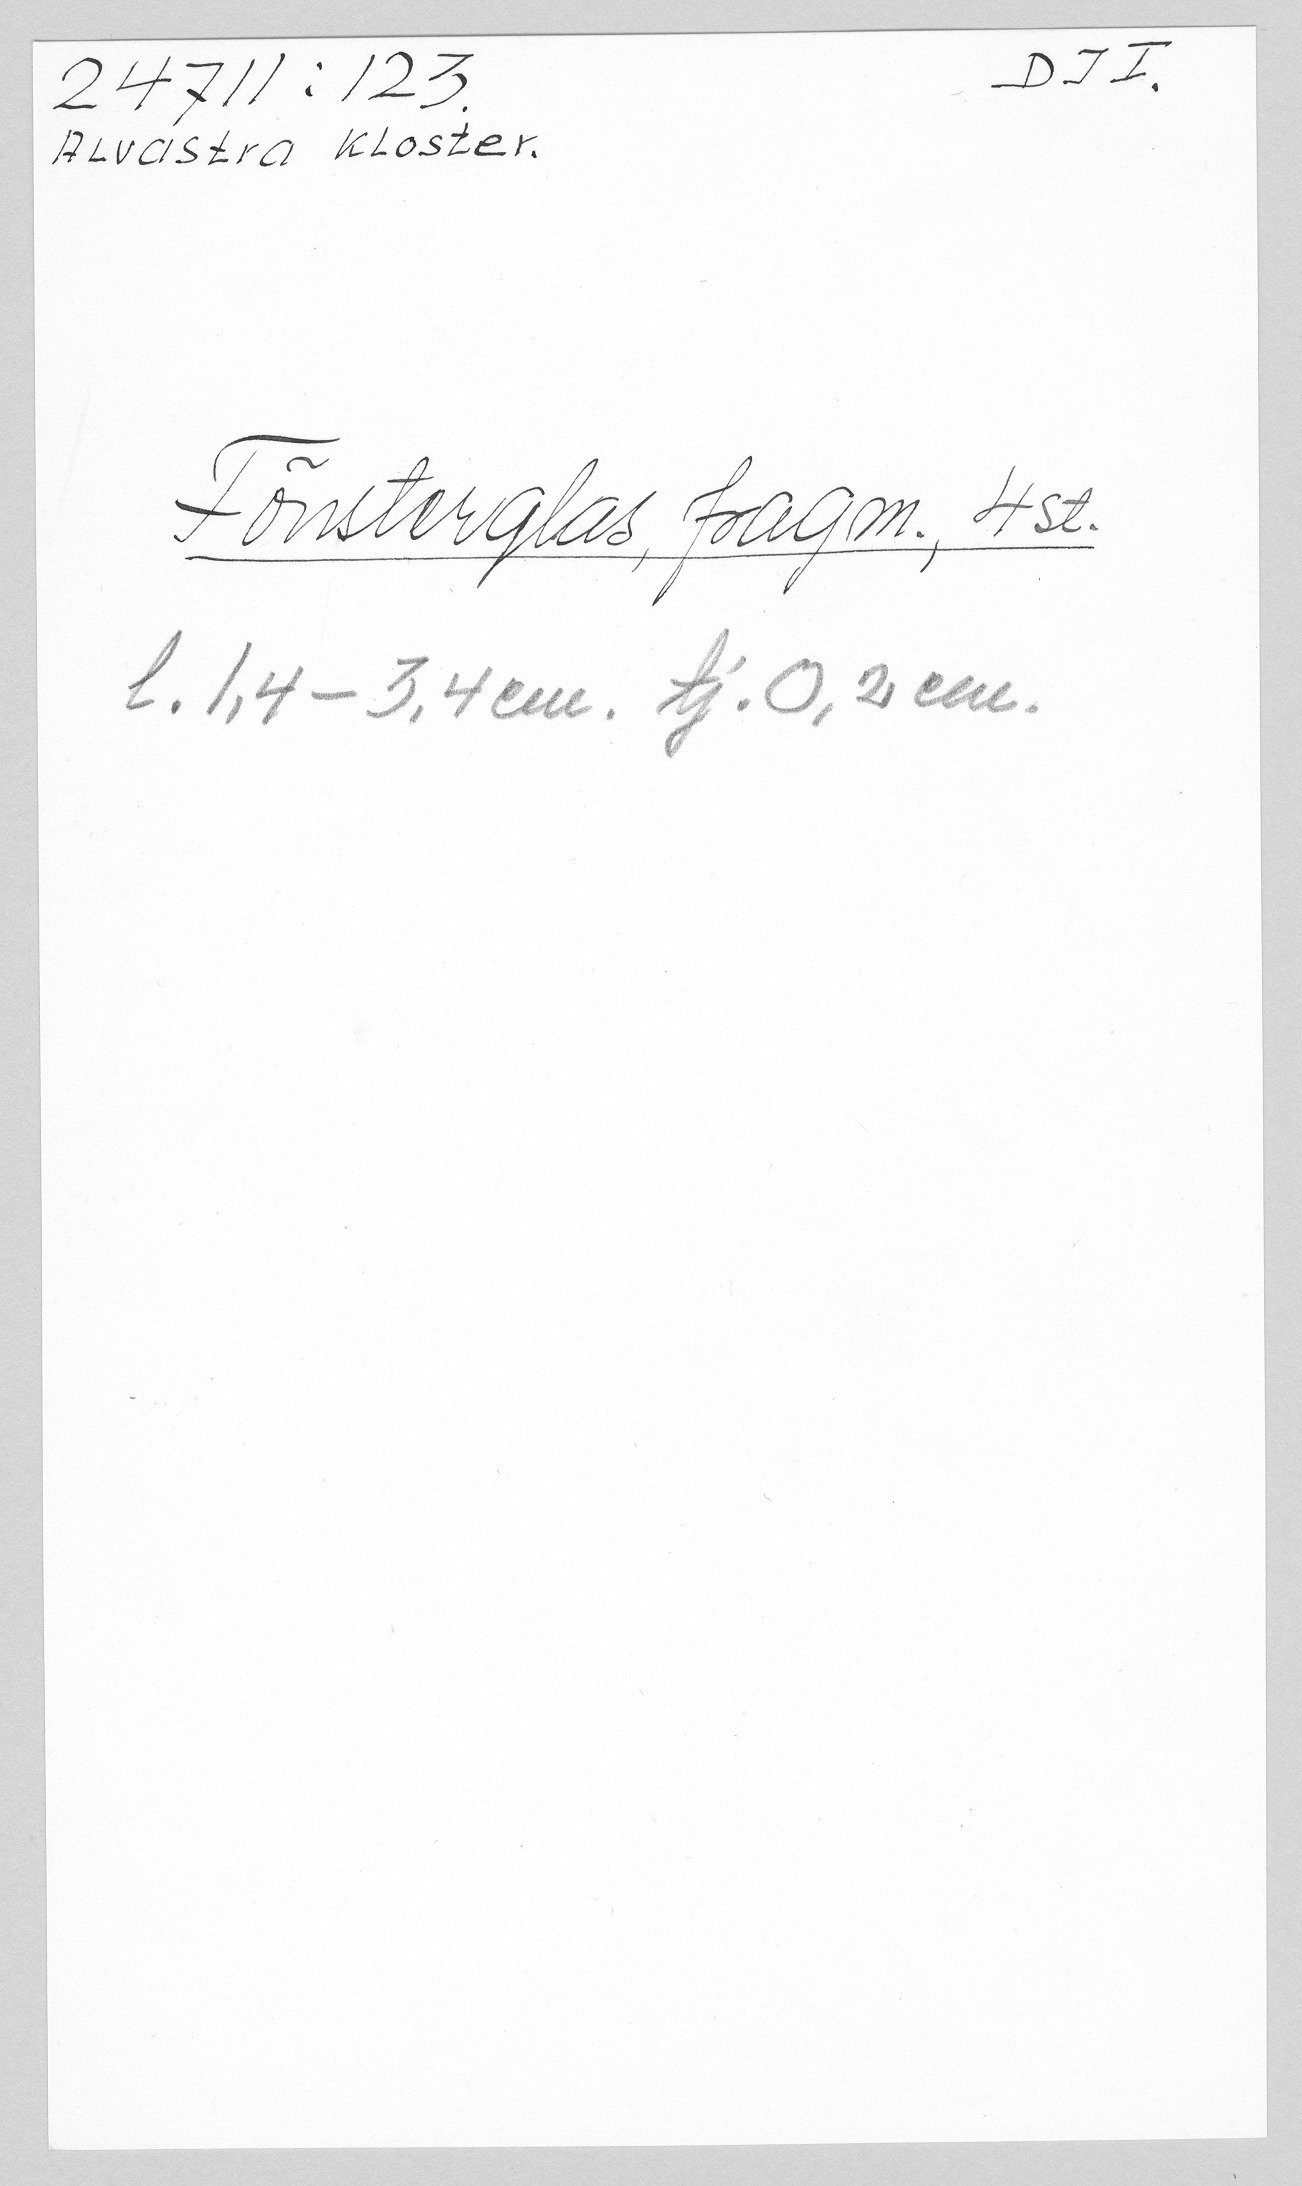 24711:123.
DII.
Alvastra kloster.
Fönsterglas, fragm., 4 st.
l. 1,4-3,4 cm. tj. 0,2 cm.